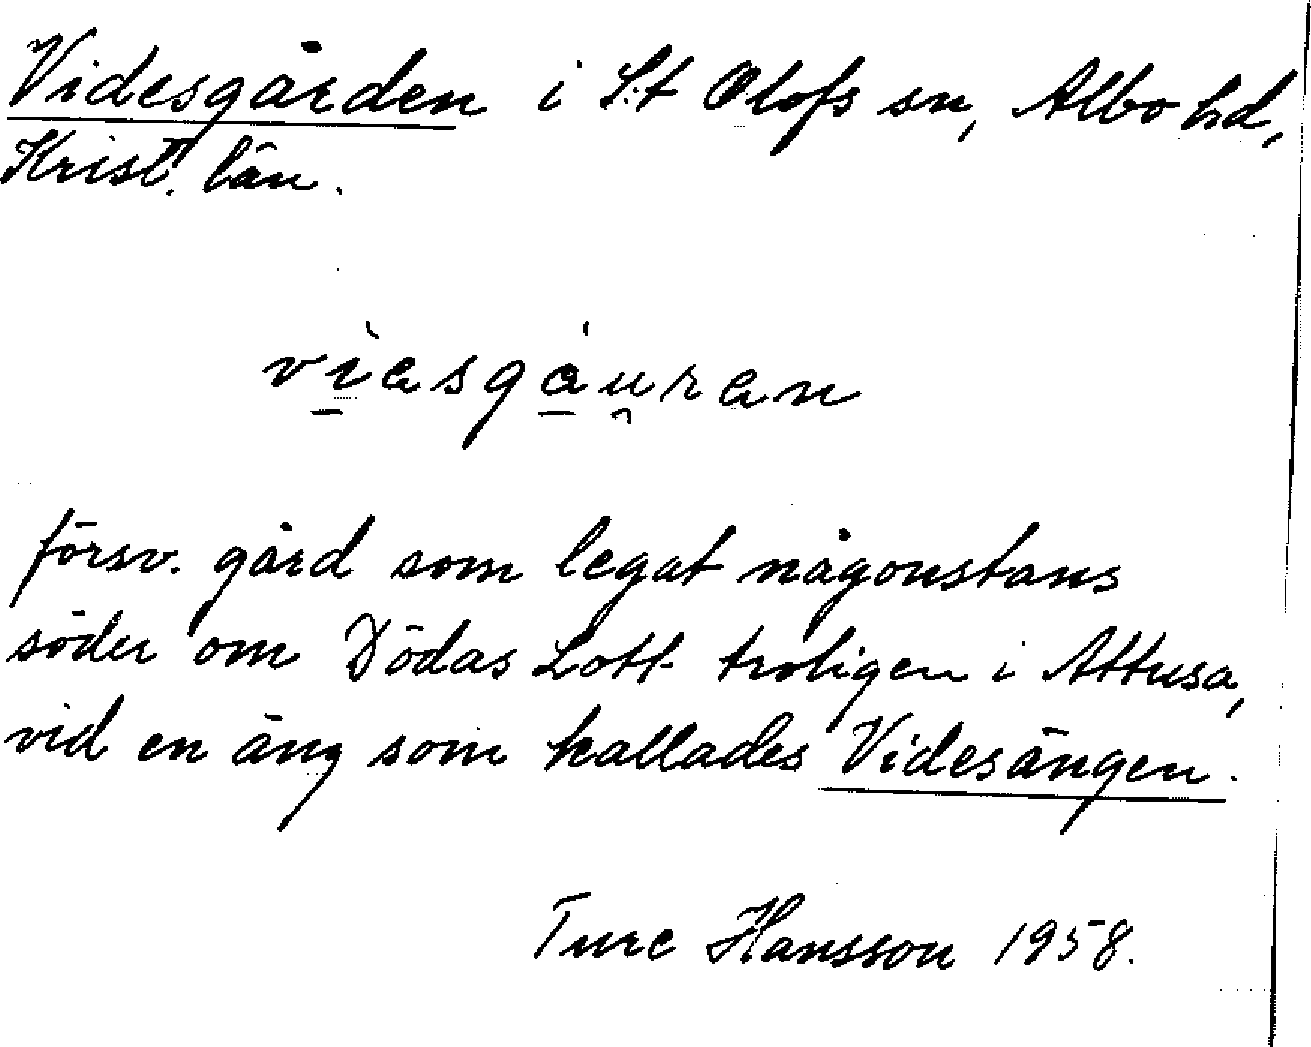 Videsgården i S:t Olofs sn, Albo hd,
Krist. län.
vìesgáu̯ren
försv. gård som legat någonstans
söder om Dödas Lott troligen i Attusa,
vid en äng som kallades Videsängen.
Ture Hansson 1958.